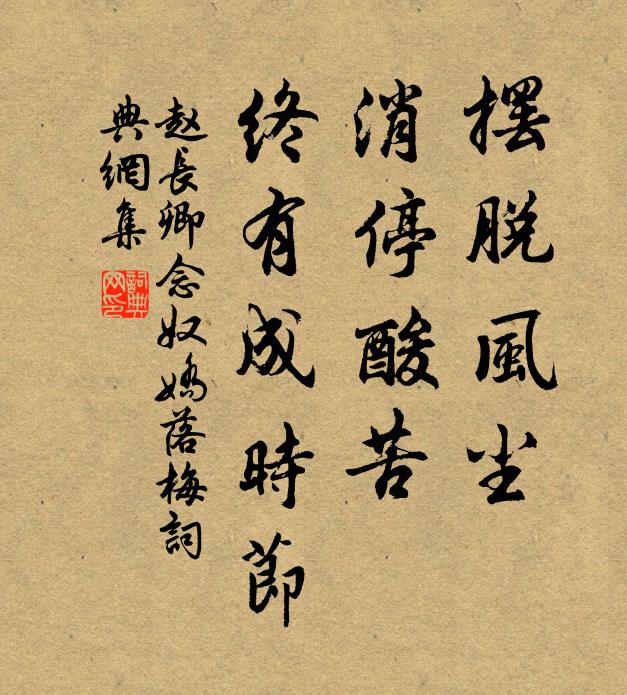 擺脫風尘
消停酸苦
終有成時節
赵長卿念奴嬌落梅詞
典網集
詞典
网印